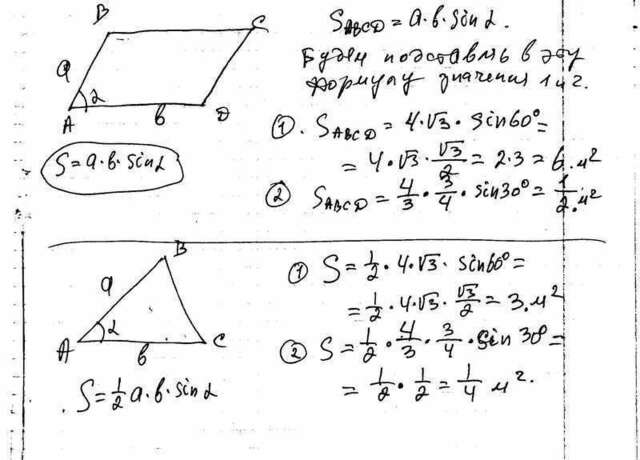 B
C
a
α
A
в
D
S = a·в·sinα
S_ABCD = a·в·sinα.
Будем подставлять в эту
формулу значения 1 и 2.
①. S_ABCD = 4·√3 · sin60° =
= 4·√3·√3/2 = 2·3 = 6.м²
② S_ABCD = 4/3 · 3/4 · sin30° = 1/2.м²
B
a
α
A
в
C
S = 1/2 a·в·sinα
① S = 1/2 · 4·√3 · sin60° =
= 1/2 · 4·√3 · √3/2 = 3.м²
② S = 1/2 · 4/3 · 3/4 · sin 30° =
= 1/2 · 1/2 = 1/4 м².